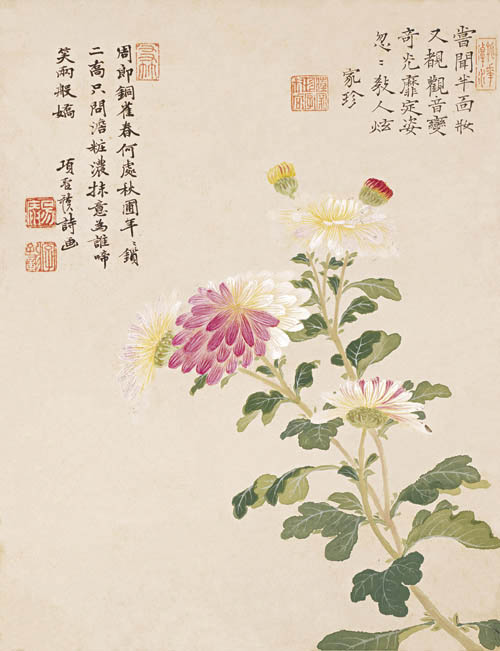 嘗聞半面妝
又覩觀音變
奇光靡定姿
忽〻教人炫
家珍
周郎銅雀春何處秋圃年〻鎖
二喬只問澹粧濃抹意為誰啼
笑兩般嬌 項聖謨詩画